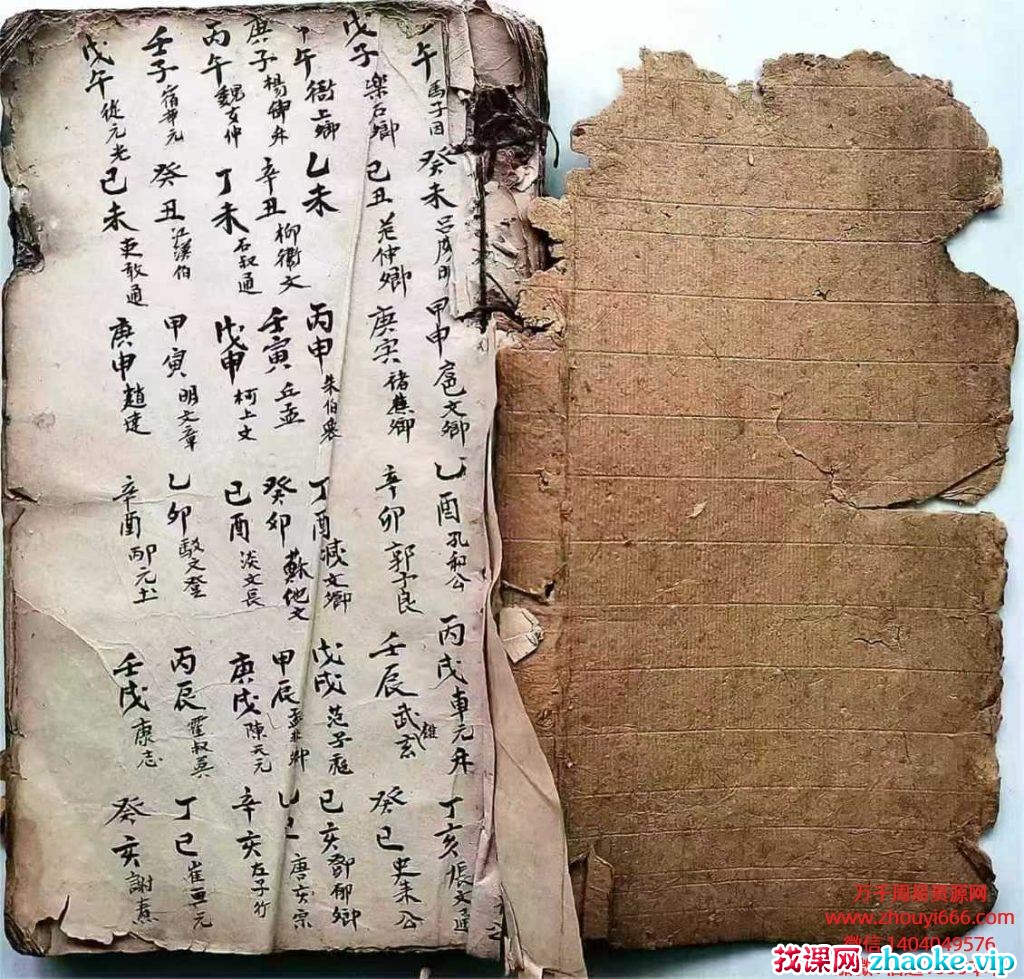 午 馬子因 癸未 吕彦明 甲申 扈文卿 乙酉 孔和公 丙戌 車元升 丁亥 張文通
戊子 樂石卿 己丑 范仲卿 庚寅 褚卿 辛卯 郭子良 壬辰 武 癸巳 史朱公
午 衙上卿 乙未 丙申 朱伯衆 丁酉 減文卿 戊戌 范子彪 己亥 鄧都卿
庚子 楊 辛丑 柳衢文 壬寅 丘孟 癸卯 蘇他文 甲辰 孟非卿 乙巳 唐亥宗
丙午 魏玄仲 丁未 石叔通 戊申 柯上文 己酉 淡文長 庚戌 陳元元 辛亥 左子竹
壬子 宿都元 癸丑 江漢伯 甲寅 明文章 乙卯 文登 丙辰 霍叔英 丁巳 崔亜元
戊午 從元光 己未 敢通 庚申 趙建 辛酉 邴元 壬戌 康志 癸亥 謝熹
万千周易资源网
www.zhouyi666.com
微信 1404049576
找课网 zhaoke.vip